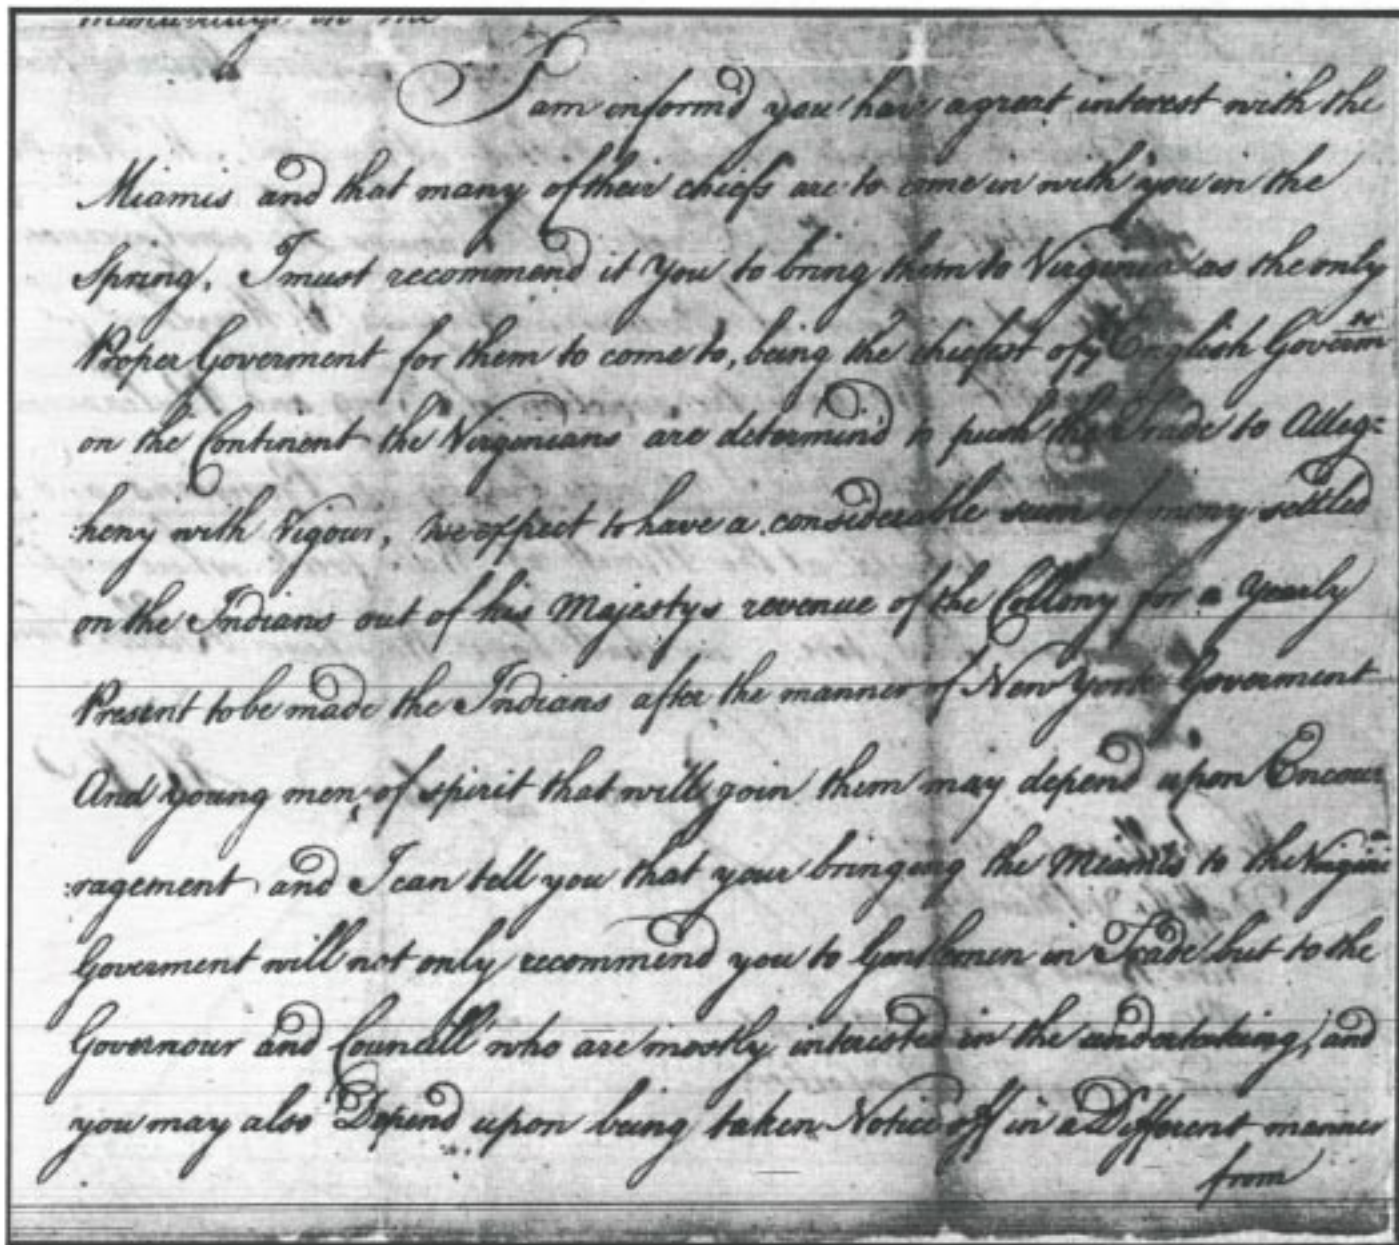 in the
I am informd you have a great interest with the
Miamis and that many of their chiefs are to come in with you in the
Spring. I must recommend it you to bring them to Virginia as the only
Proper Goverment for them to come to, being the chiefest of yᵉ English Governᵐᵗˢ
on the Continent the Virginians are determind to push the Trade to Alleg=
:heny with Vigour, we expect to have a considerable sum of mony settled
on the Indians out of his Majestys revenue of the Collony for a Yearly
Present to be made the Indians after the manner of New York Goverment
And young men of spirit that will join them may depend upon Encour
:ragement and I can tell you that your bringing the Miamis to the Virginiᵃ
Goverment will not only recommend you to Gentlemen in Trade but to the
Governour and Councill who are mostly interisted in the undertaking, and
you may also Depend upon being taken Notice off in a Different manner
from